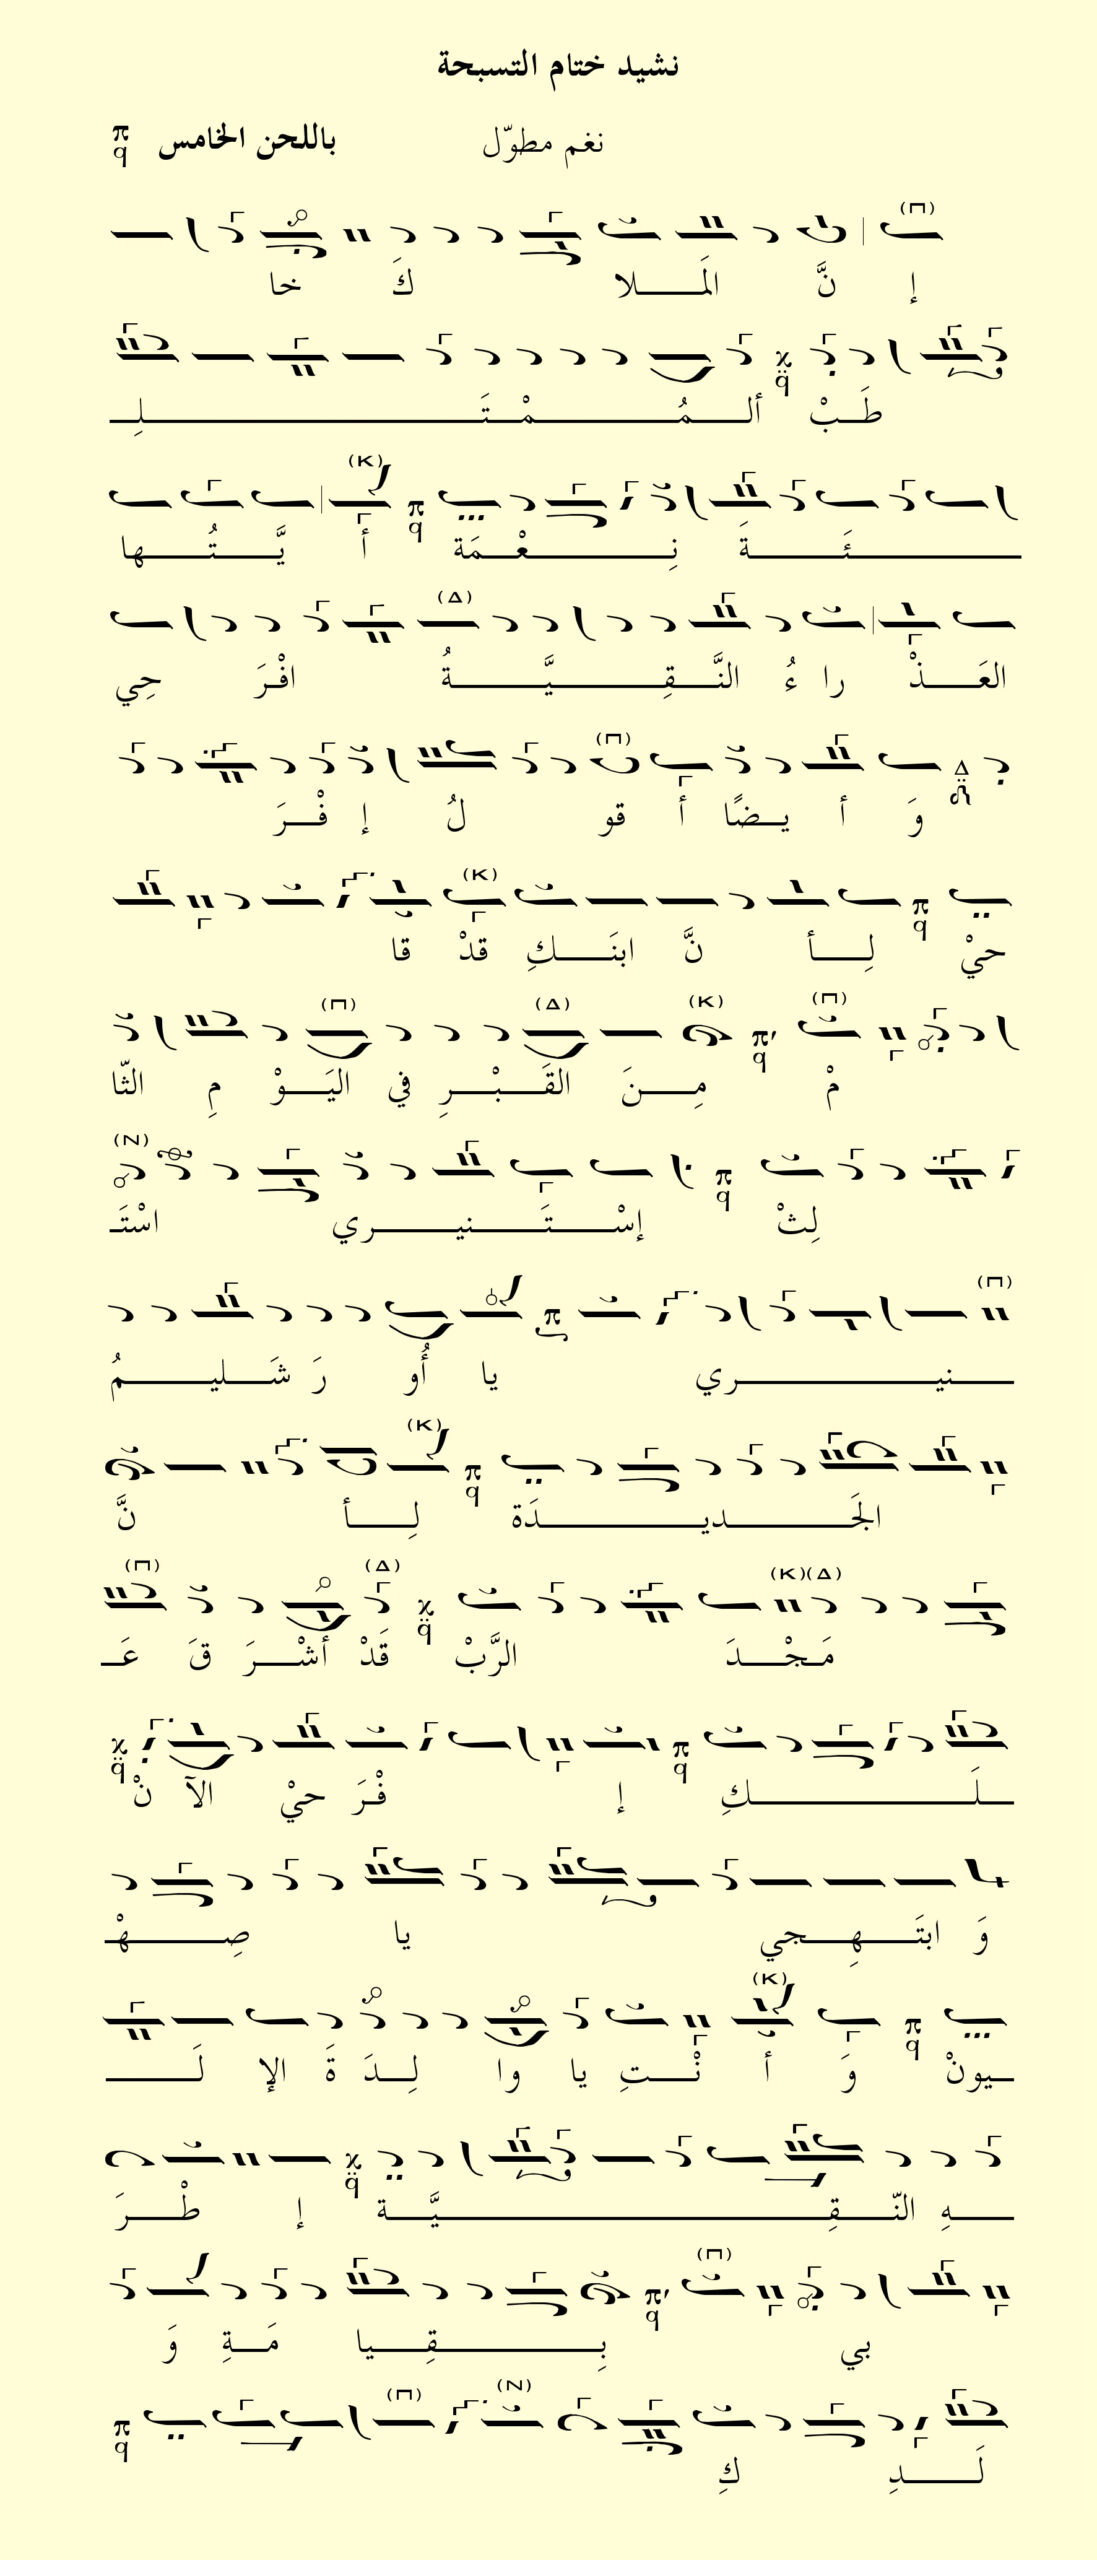 نشيد ختام التسبحة
نغم مطوّل باللحن الخامس
إ نَّ المَـــلا كَ خا
طَــبْ ألــمُــمْــتَــلِــ
ـــئَــةَ نِــعْــمَة أ يَّــتُــها
العَــذْ را ءُ النَّــقِــيَّــةُ افْرَ حِي
وَ أ يــضًا أ قو لُ إ فْــرَ
حيْ لِــأ نَّ ابنَــكِ قدْ قا
مْ مِــنَ القَــبْــرِ في اليَــوْ مِ الثّا
لِثْ إسْــتَــنيــري اسْتَـ
ـــنيــري يا أُو رَ شَــليــمُ
الجَــديــدَة لِــأ نَّ
مَــجْــدَ الرَّبْ قَدْ أشْــرَ قَ عَـ
ـــلَــكِ إ فْــرَ حيْ الآ نْ
وَ ابتَــهِــجي يا صِــهْـ
ـيونْ وَ أ نْــتِ يا وا لِــدَ ةَ الإ لَــ
ـــهِ النّــقِــيَّــة إ طْــرَ
بي بِــقِــيا مَــةِ وَ
لَــدِ كِ